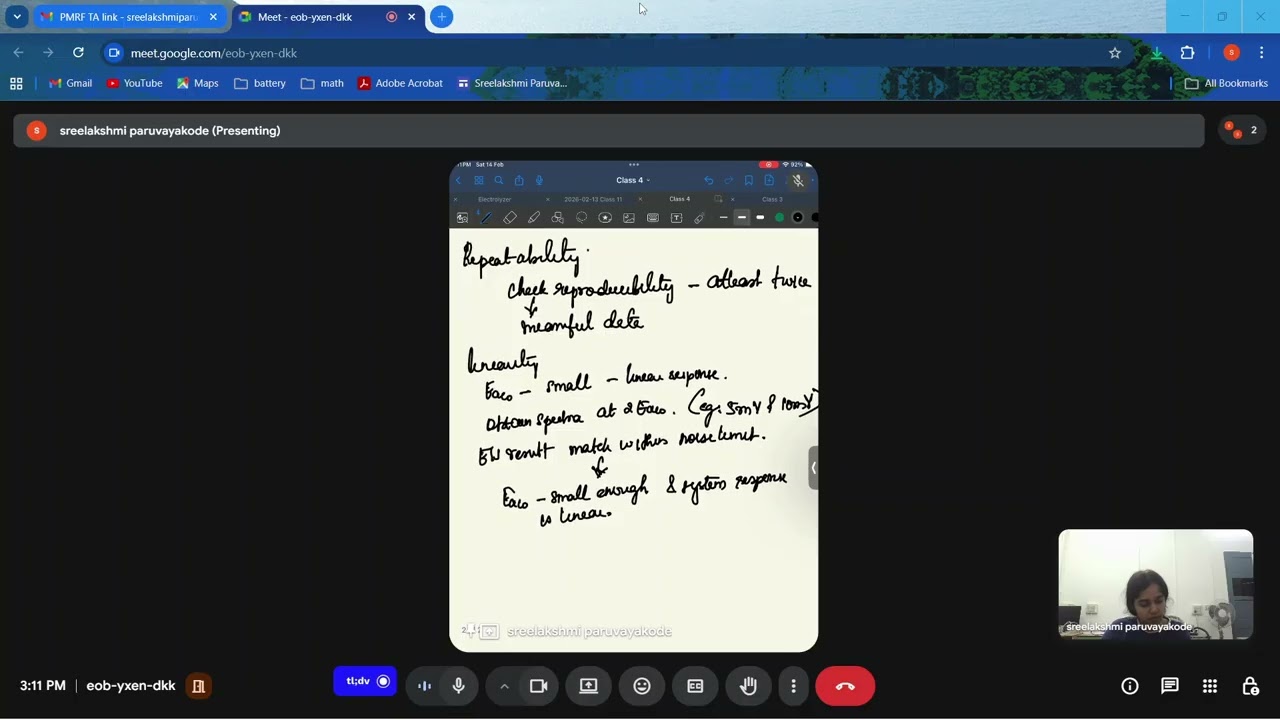 PMRF TA link - sreelakshmiparu
Meet - eob-yxen-dkk
meet.google.com/eob-yxen-dkk
Gmail
YouTube
Maps
battery
math
Adobe Acrobat
Sreelakshmi Paruva...
All Bookmarks
S sreelakshmi paruvayakode (Presenting)
2
1PM Sat 14 Feb
92%
Class 4
Electrolyzer
2026-02-13 Class 11
Class 4
Class 3
Repeatability:
Check reproducibility - atleast twice
data
Linearity
Eaco - small - linear response.
Obtain spectra at 2 Eaco. (eg: 5mV & 10mV)
result match within noise limit.
Eaco - small enough & system response
is linear.
sreelakshmi paruvayakode
sreelakshmi paruvayakode
3:11 PM | eob-yxen-dkk
tl;dv